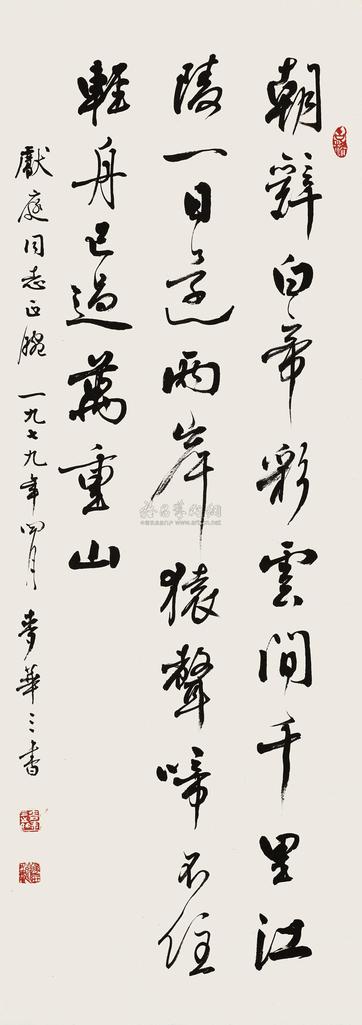 朝辭白帝彩雲間千里江
陵一日還兩岸猿聲啼不住
輕舟已過萬重山
獻庭同志正腕 一九七九年四月 麥華三書